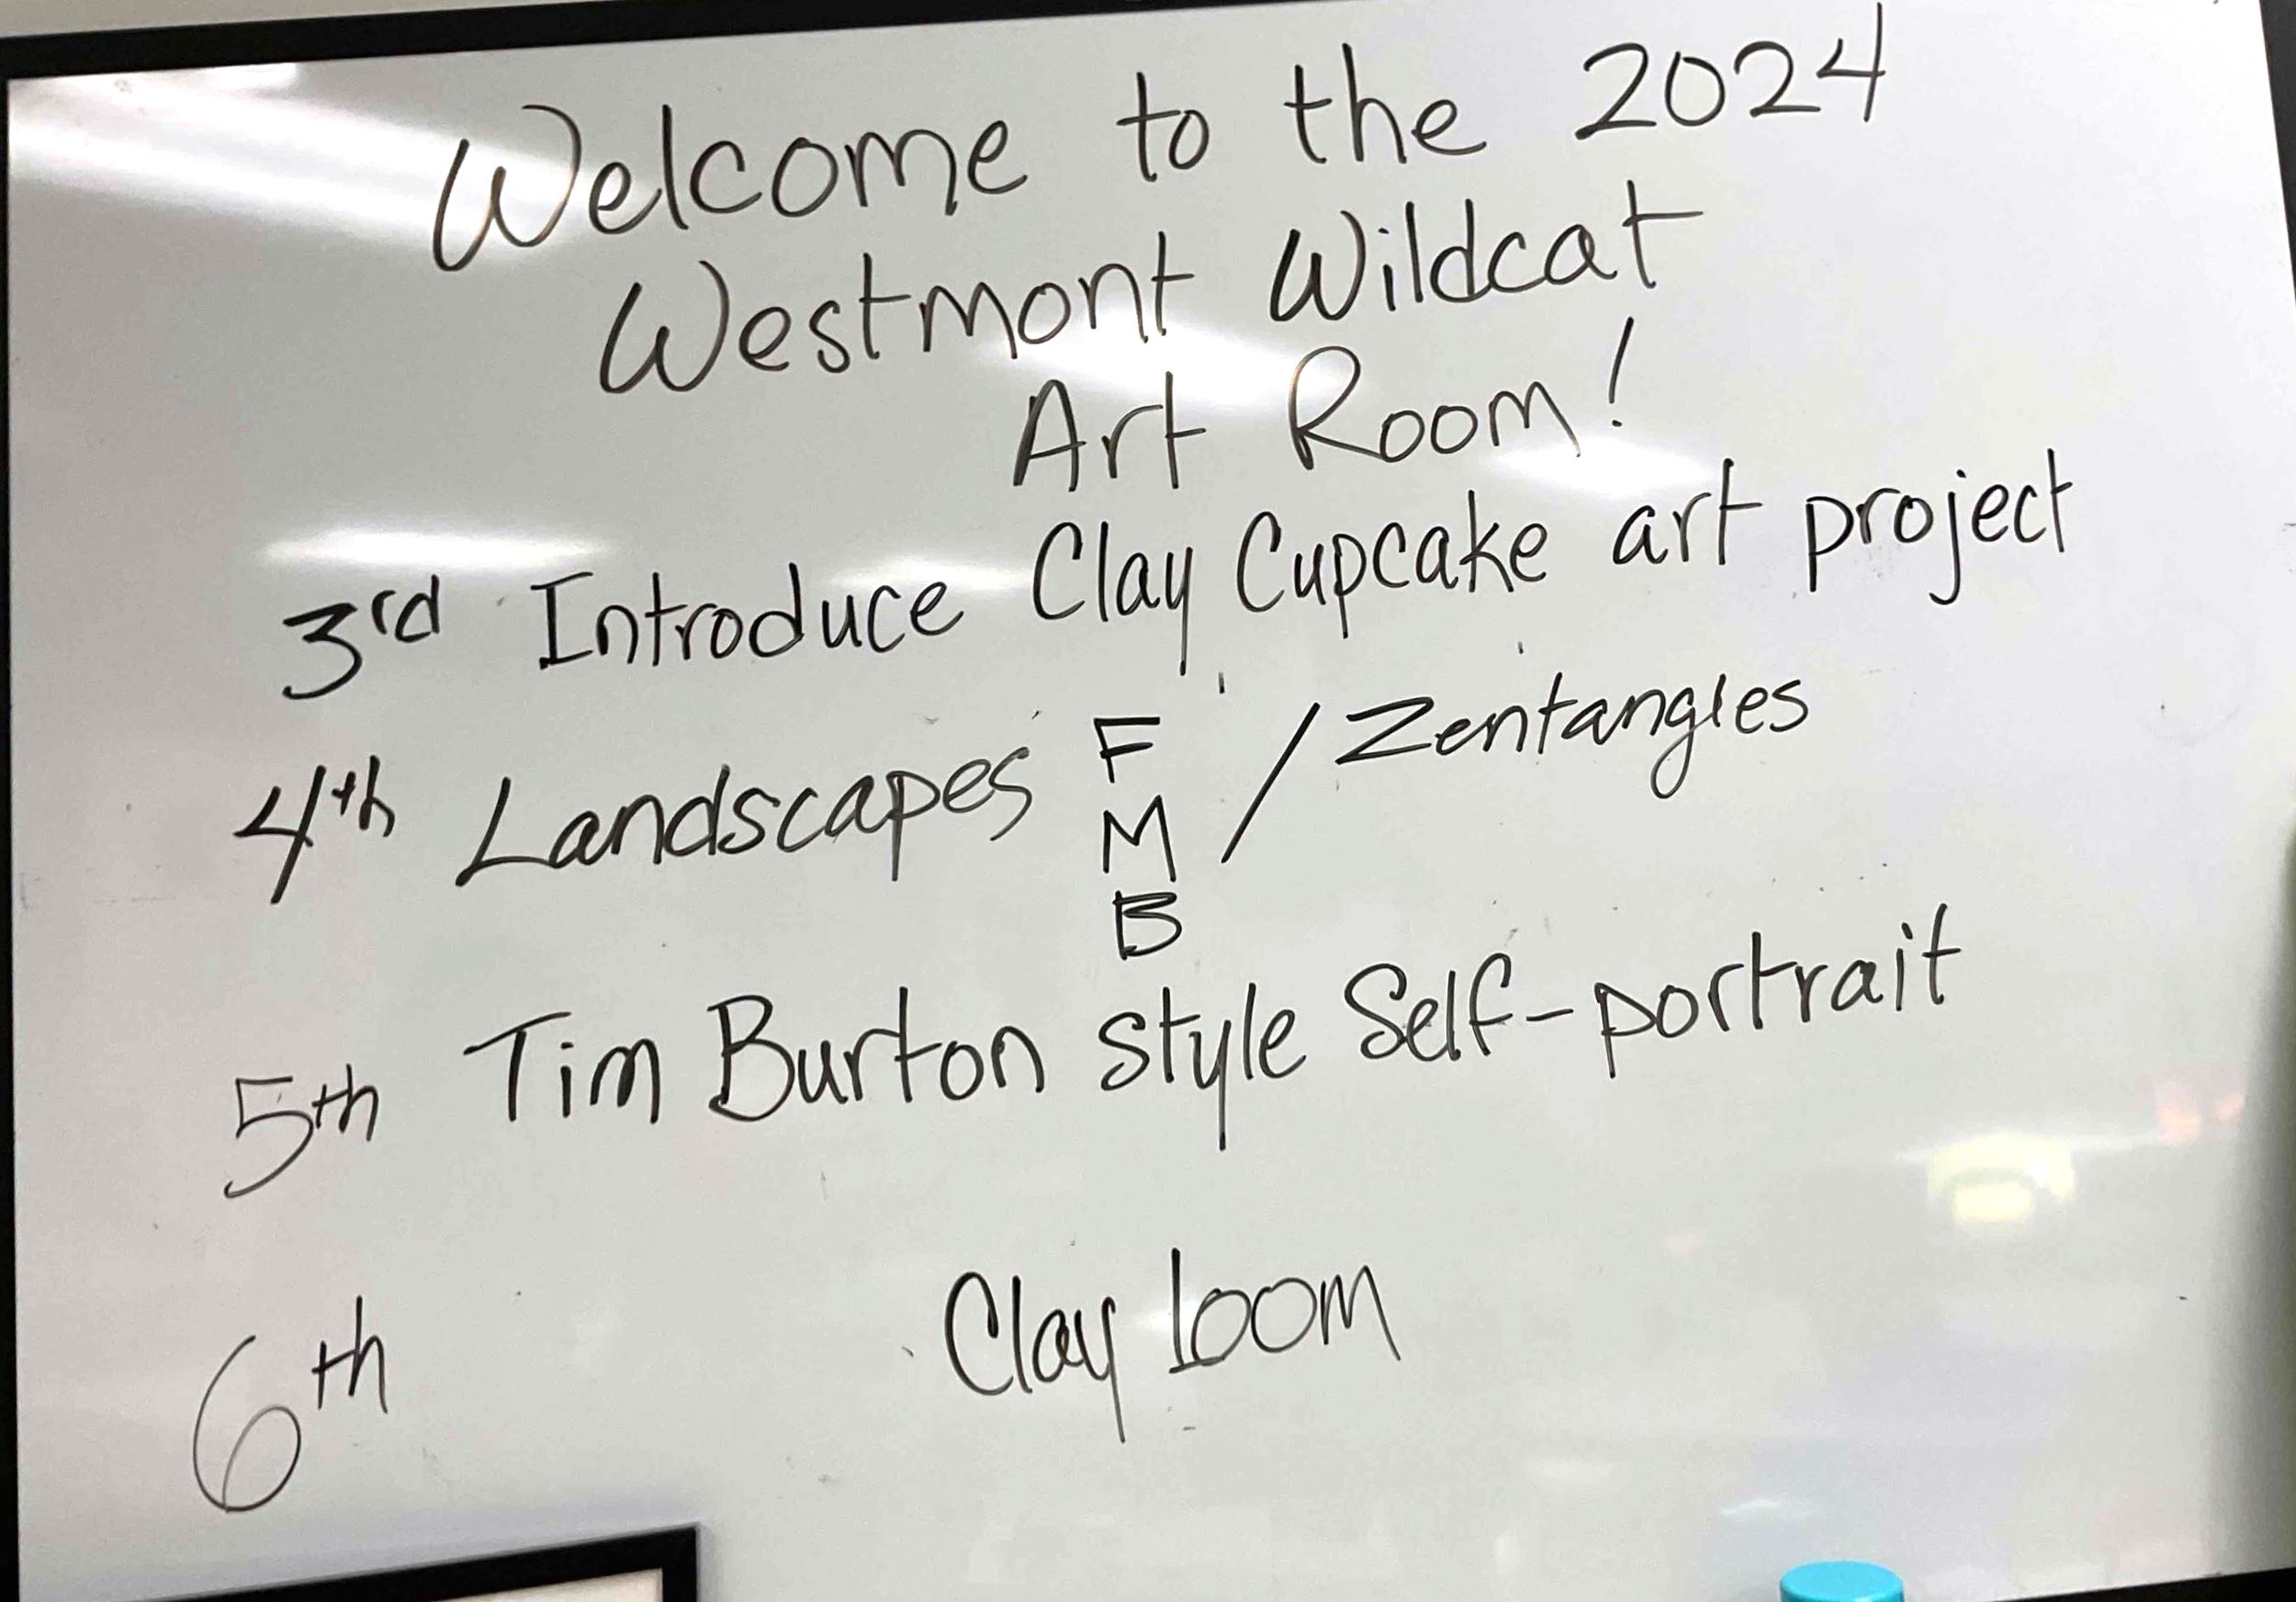 Welcome to the 2024
Westmont Wildcat
Art Room!
3rd Introduce Clay Cupcake art project
4th Landscapes F / Zentangles
M
B
5th Tim Burton style Self-portrait
6th Clay loom